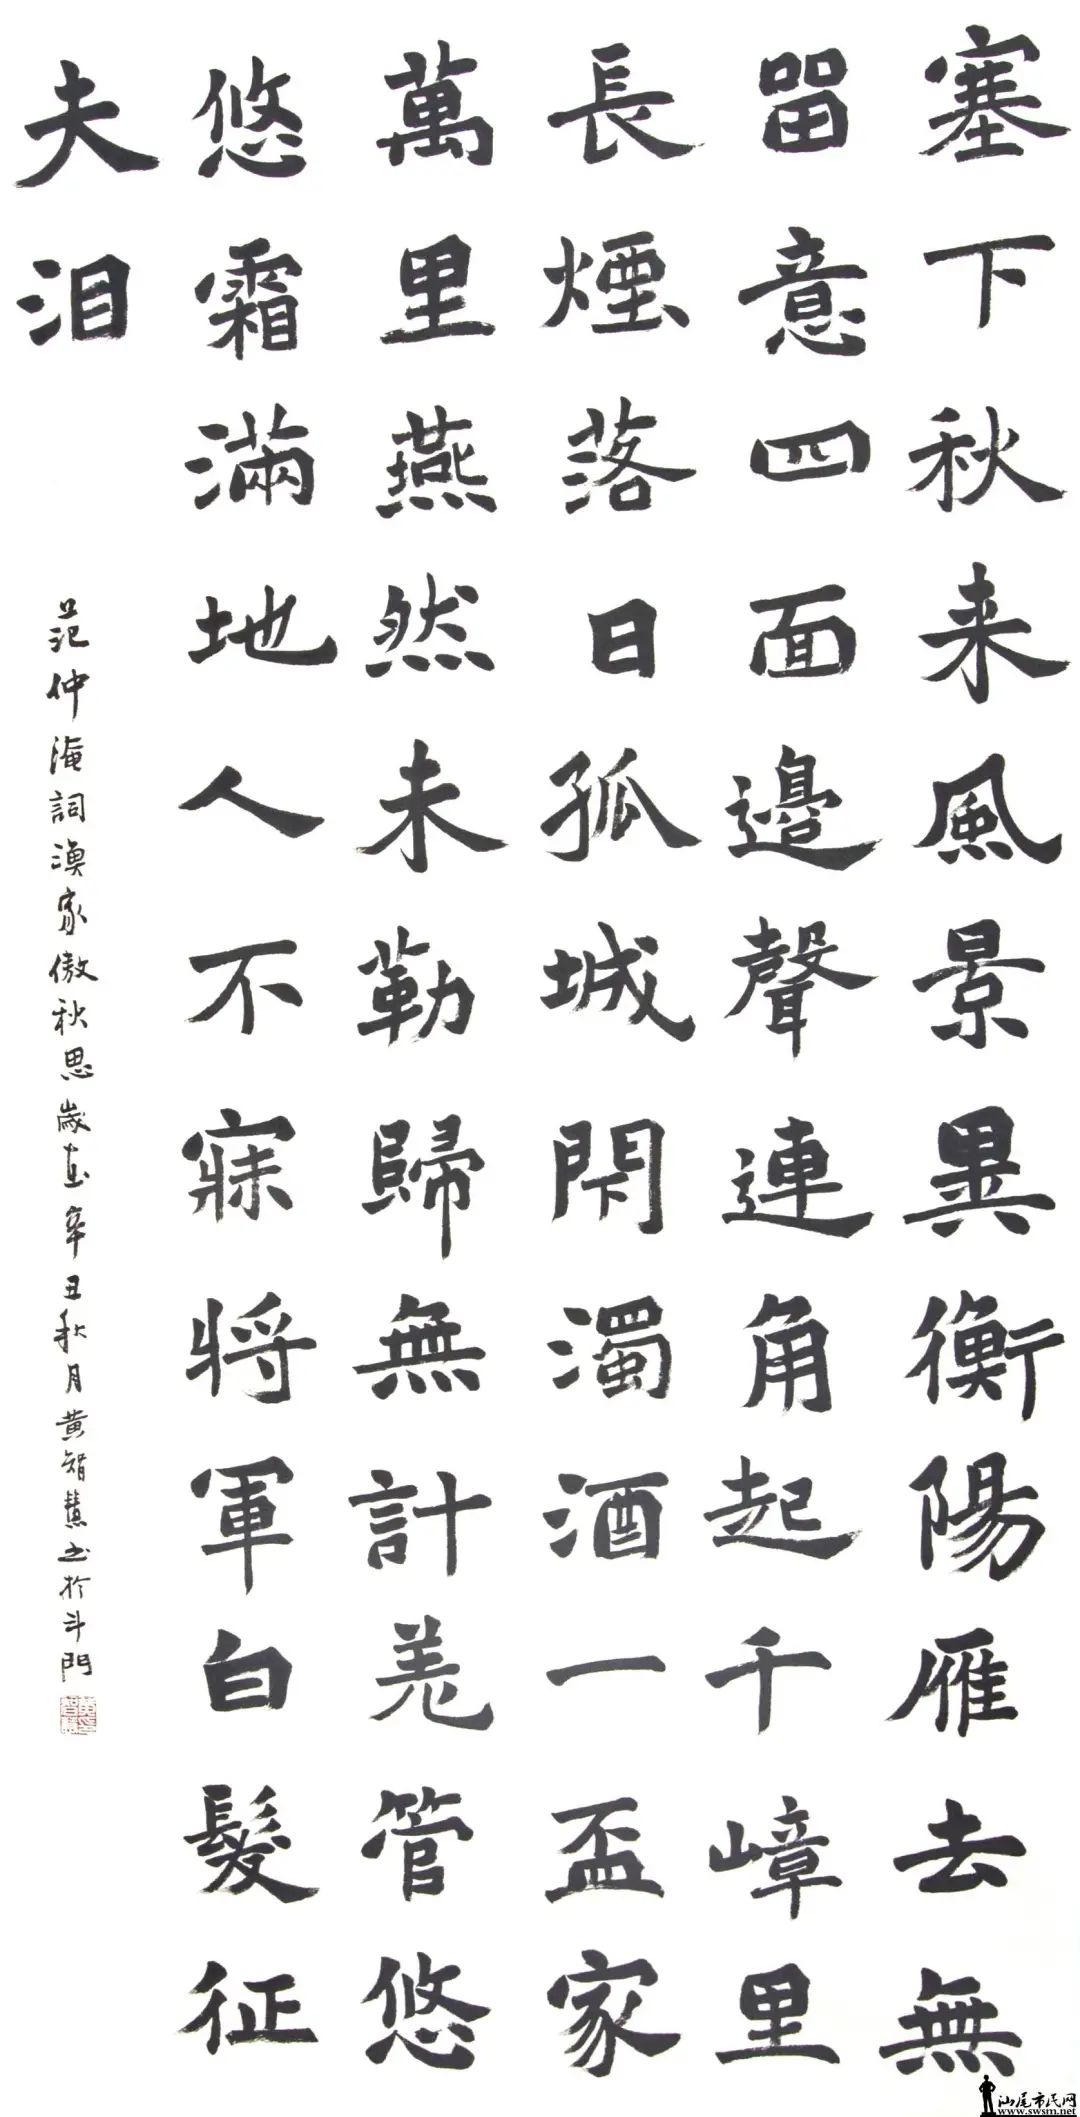 塞下秋来風景異衡陽雁去無
畱意四面邊聲連角起千嶂里
長煙落日孤城閇濁酒一盃家
萬里燕然未勒歸無計羌管悠
悠霜滿地人不寐將軍白髮征
夫泪
范仲淹詞漁家傲秋思歲在辛丑秋月黄智慧书於斗門
汕尾市民网
www.swsm.net